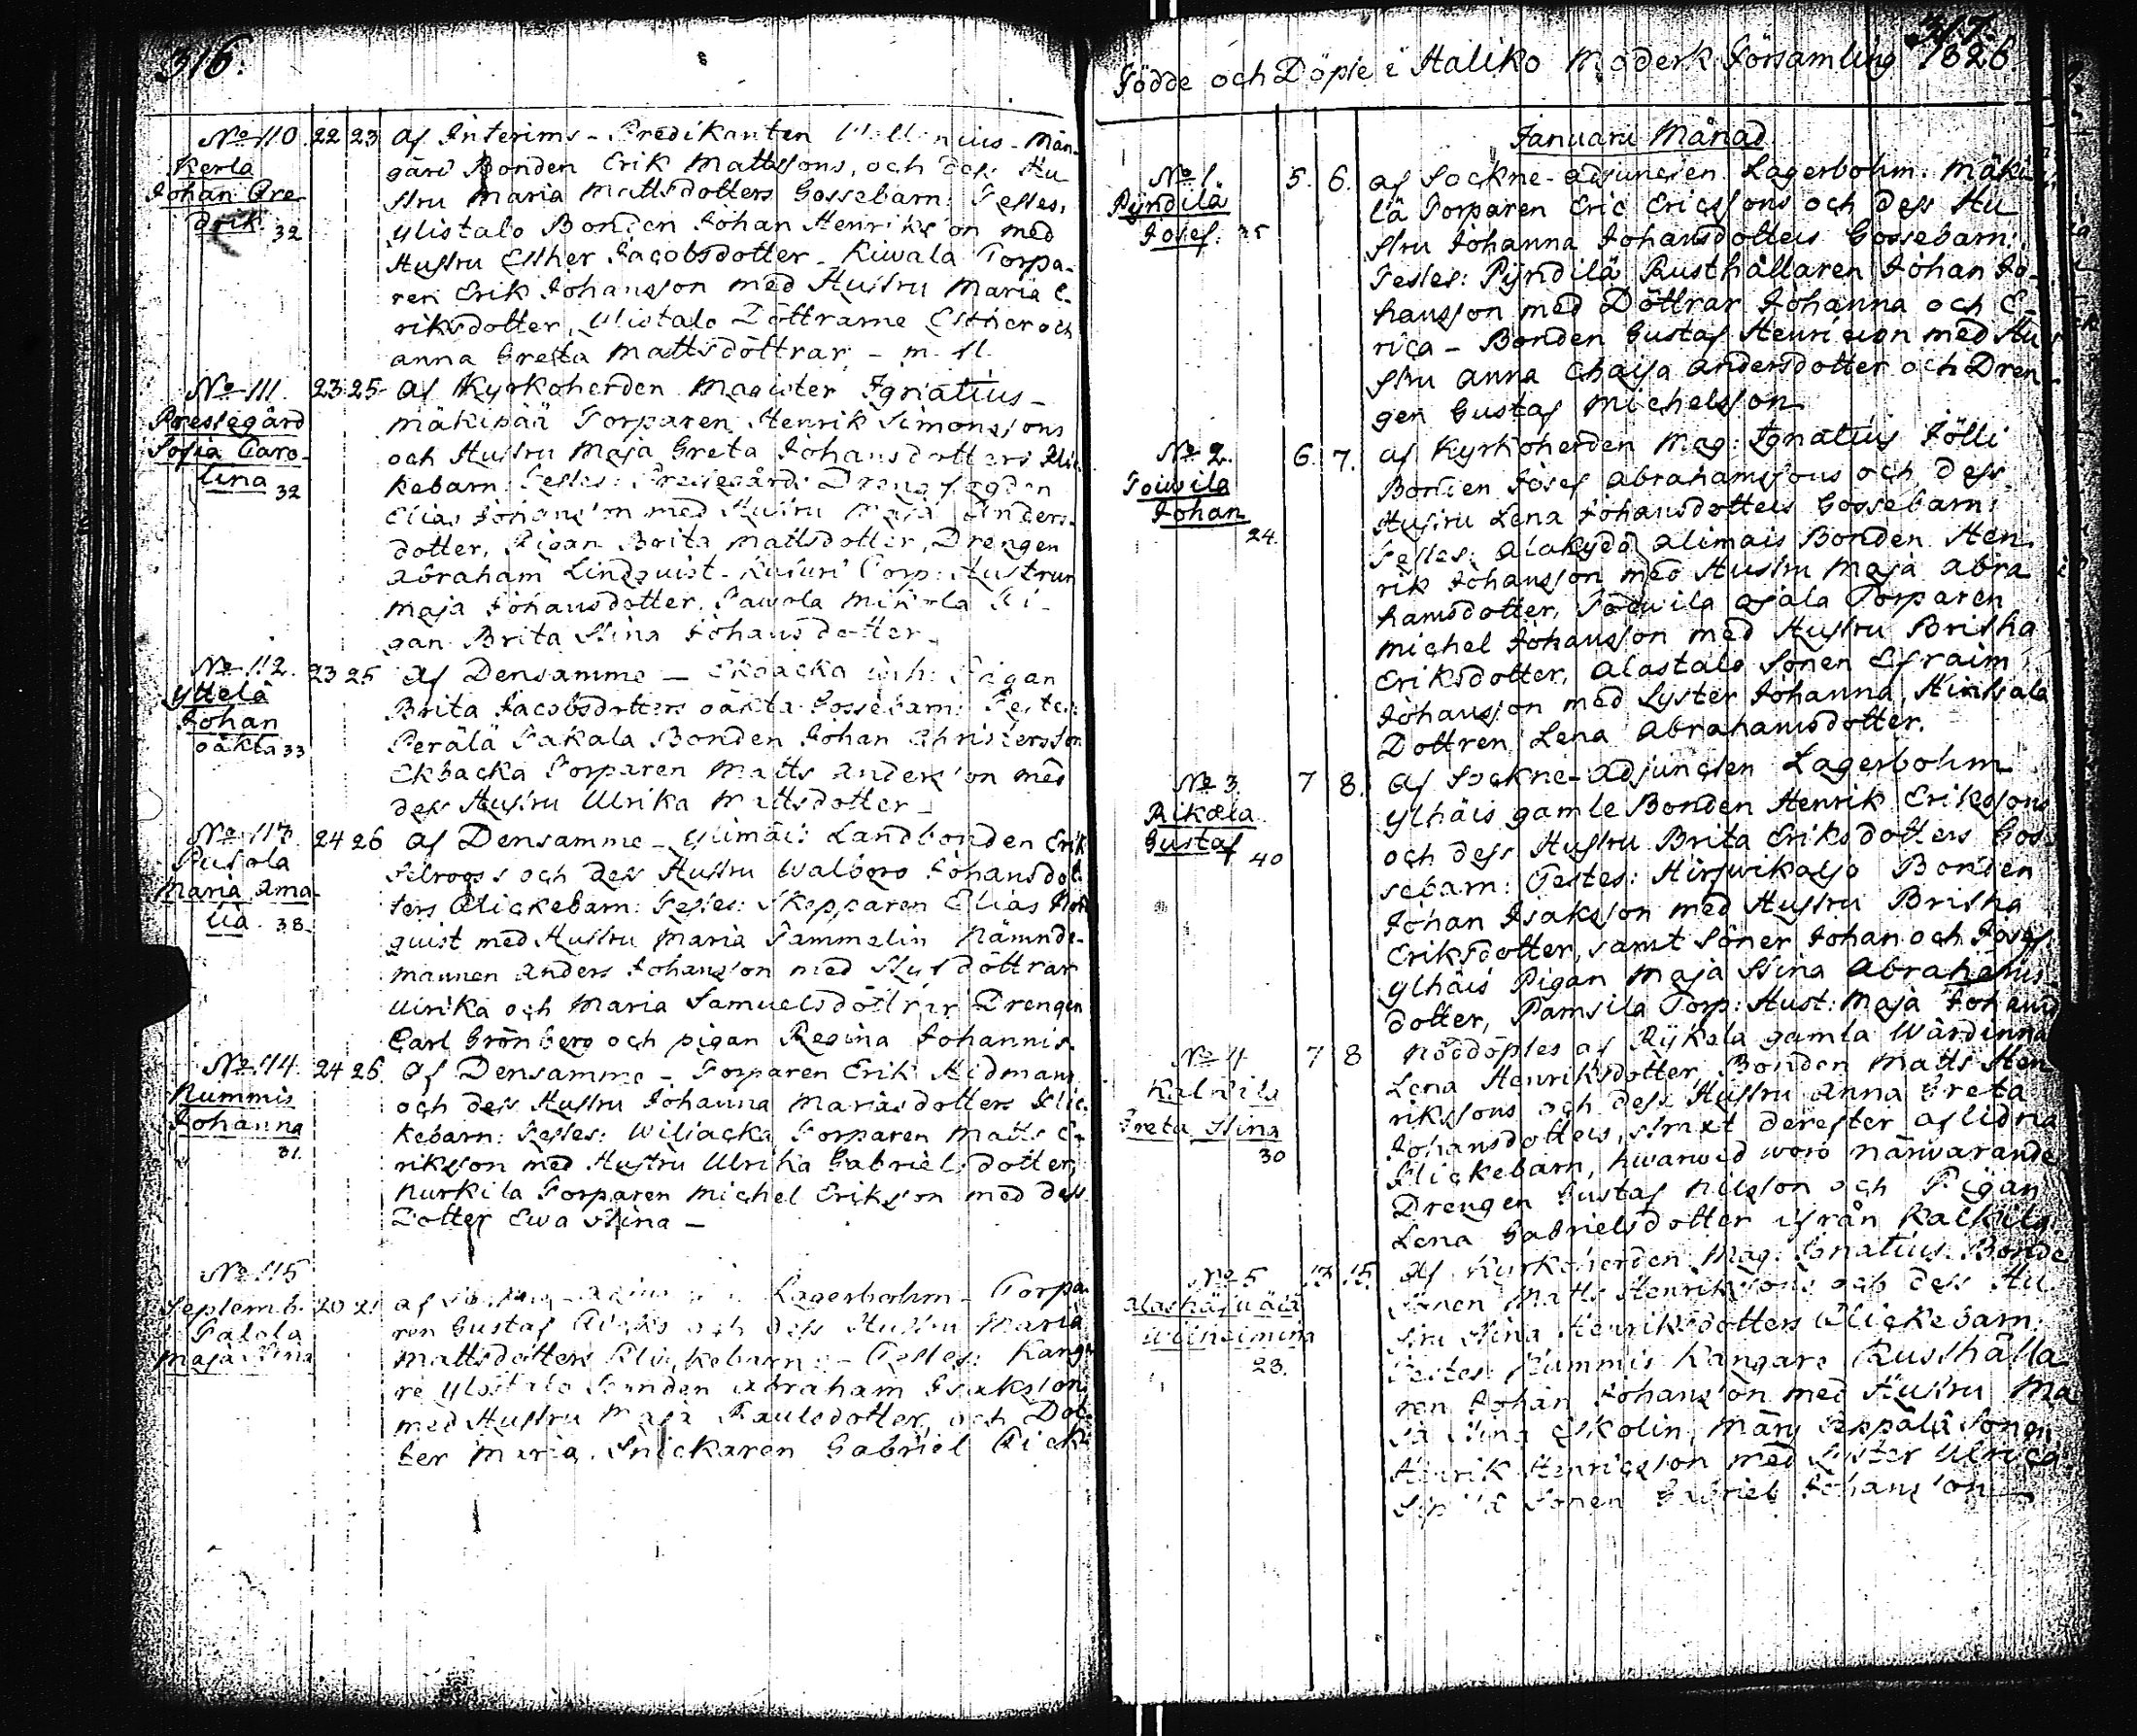 316.
No 110. 22 23 af Interims-Predikanten - Män-
Kerla gård Bonden Erik Mattssons, och dess Hu
Johan Fre stru Maria Mattsdotters Gossebarn: Testes,
drik. 32 Ylistalo Bonden Johan Henriksson med
Hustru Esther Jacobsdotter - Kiwala Torpa-
ren Erik Johansson med Hustru Maria E-
riksdotter, Ylistalo Döttrarne Esther och
anna Greta Mattsdöttrar - m. fl.
No 111. 23 25 af Kyrkoherden Magister Ignatius -
Prestegård Mäkipää Torparen Henrik Simonssons
Sofia Caro- och Hustru Maja Greta Johansdotters Flic
lina 32 kebarn: Testes: Prestegårds Dreng
Elias Johansson med Hustru Maja Anders-
dotter, Pigan Brita Mattsdotter, Drengen
Abraham Lindquist - Torp: Hustrun
Maja Johansdotter. Pi-
gan Brita Stina Johansdotter -
No 112. 23 25 af Densamme - Ekbacka inh: Pigan
Yttelä Brita Jacobsdotters oäkta Gossebarn: Testes:
Johan Perälä Pakala Bonden Johan Christersson
oäkta 33 Ekbacka Torparen Matts Andersson med
dess Hustru Ulrika Mattsdotter -
No 113. 24 26 af Densamme - Landbonden Erik
Pusola Selroos och dess Hustru Walborg Johansdot-
Maria Ama- ters Flickebarn: Testes: Skepparen Elias
lia. 38. quist med Hustru Maria Sammelin Nämnde-
mannen Anders Johansson med döttrar
Ulrika och Maria Samuelsdöttrar Drengen
Carl Grönberg och pigan Regina Johannis.
No 114. 24 26. af Densamme - Torparen Erik Hidmans
Nummis och dess Hustru Johanna Mariasdotters Flic-
Johanna kebarn: Testes: Wiliacka Torparen Matts E-
31. riksson med Hustru Ulrika Gabrielsdotter,
Nurkila Torparen Michel Eriksson med dess
Dotter Ewa Stina -
No 115
Septemb. 20 21 af Lagerbohm - Torpa-
Palola ren Gustaf och dess Hustru Maria
Maja Stina Mattsdotters Flickebarn: - Testes: Kanga
re Ylistalo Bonden Abraham Isaksson
med Hustru Maja Paulsdotter, och Dot-
ter Maria. Snickaren Gabriel
317.
Födde och Döpte i Haliko Moderk Församling 1826
Januari Månad
No 1. 5. 6. af Sockne-adjuncten Lagerbohm: Mäki-
Pyndilä lä Torparen Eric Ericssons och dess Hu
Josef. 25 stru Johanna Johansdotters Gossebarn:
Testes: Pyndilä Rusthållaren Johan Jo-
hansson med Döttrar Johanna och E-
rica - Bonden Gustaf Henricson med Hu
stru Anna Chaisa Andersdotter och Dren-
gen Gustaf Michelsson
No 2. 6. 7. af Kyrkoherden Mag: Ignatius Jölli
Toiwila Bonden Josef Abrahamssons och dess
Johan Hustru Lena Johansdotters Gossebarn:
24. Testes: Alakydö Alimais Bonden Hen
rik Johansson med Hustru Maja Abra
hamsdotter, Ajala Torparen
Michel Johansson med Hustru Britha
Eriksdotter, Alastalo Sonen Efraim
Johansson med Syster Johanna,
Dottren Lena Abrahamsdotter.
No 3. 7 8. af Sockne-adjuncten Lagerbohm
Rikala Ylhäis gamle Bonden Henrik Erikssons
Gustaf 40 och dess Hustru Brita Eriksdotters Gos-
sebarn: Testes: Hirswikaljo Bonden
Johan Isaksson med Hustru Britha
Eriksdotter, samt Söner Johan och Josef
Ylhäis Pigan Maja Stina Abrahams
dotter, Pamsila Torp: Hust: Maja Johans
No 4 7 8 Nöddöptes af Rykala gamla Wärdinna
Kalkila Lena Henriksdotter, Bonden Matts Hen
Greta Stina rikssons och dess Hustru Anna Greta
30 Johansdotters, straxt derefter aflidna
Flickebarn, hwarwid woro närwarande
Drengen Gustaf Nilsson och Pigan
Lena Gabrielsdotter ifrån Kalkila
No 5 15. af Kyrkoherden Mag: Ignatius: Bonde
Wilhelmina Sonen Matts Henrikssons och dess Hu
23. stru Stina Henriksdotters Flickebarn:
Testes: Nummis Kangare Rusthålla
ren Johan Johansson med Hustru Ma
ja Stina Ekolin, Märy Seppälä Sonen
Henrik Henricsson med Syster Ulrica
Sonen Gabriel Johansson